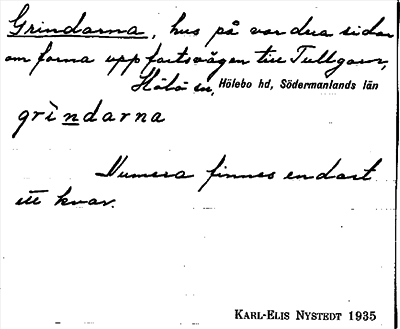 Grindarna, hus på vardera sidan
om forna uppfartsvägen till Tullgarn,
Hölö sn, Hölebo hd, Södermanlands län
grìndarna
Numera finnes endast
ett kvar.
KARL-ELIS NYSTEDT 1935